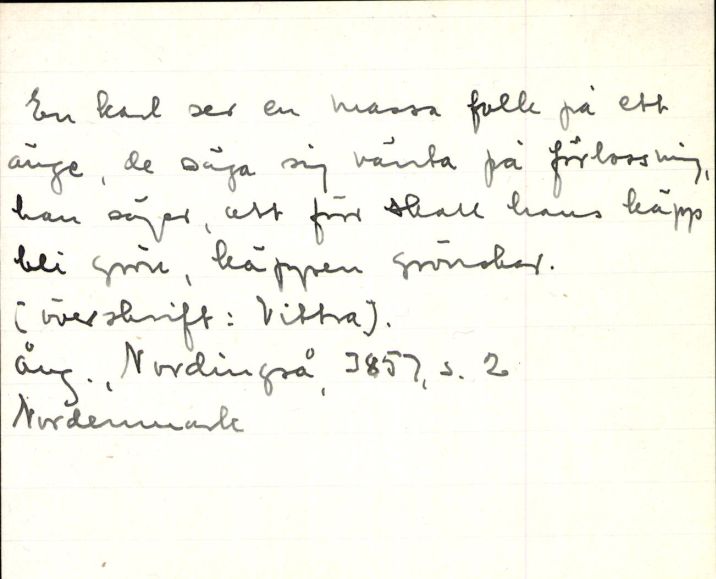 En karl ser en massa folk på ett
änge, de säga sig vänta på förlossning,
han säger, att förr skall hans käpp
bli grön, käppen grönskar.
[överskrift: Vittra].
Ång., Nordingrå, 3857, s. 2
Nordenmark